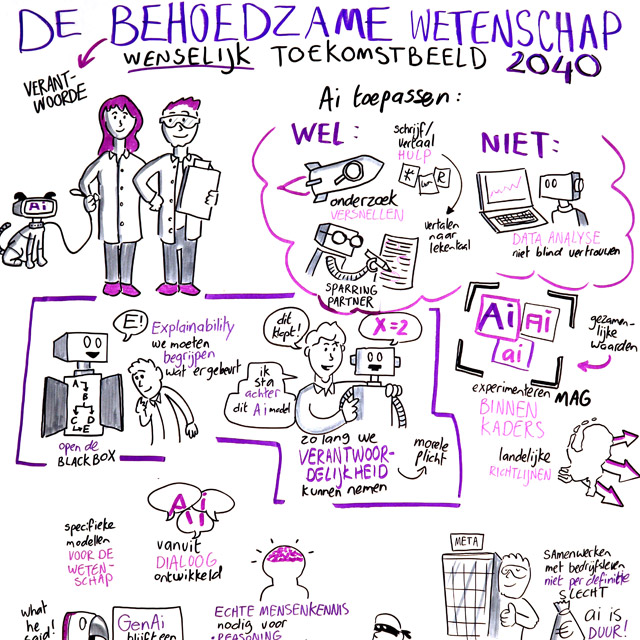 DE BEHOEDZAME WETENSCHAP
WENSELIJK TOEKOMSTBEELD 2040
VERANT-
WOORDE
Ai
Ai toepassen:
WEL:
onderzoek
VERSNELLEN
schrijf/
vertaal
HULP
vertalen
naar
lekentaal
SPARRING
PARTNER
NIET:
DATA ANALYSE
niet blind vertrouwen
E!
Explainability
we moeten
begrijpen
wat er gebeurt
A
B
C D
E
open de
BLACK BOX
dit
klopt!
X=2
ik
sta
achter
dit Ai model
zo lang we
VERANTWOOR-
DELIJKHEID
kunnen nemen
morele
plicht
Ai
Ai
ai
gezamen-
lijke
waarden
experimenteren MAG
BINNEN
KADERS
landelijke
RICHTLIJNEN
specifieke
modellen
VOOR DE
WETEN-
SCHAP
Ai
vanuit
DIALOOG
ontwikkeld
ECHTE MENSENKENNIS
nodig voor
REASONING
META
SAMENWERKEN
met bedrijfsleven
niet per definitie
SLECHT
ai is
DUUR!
what
he
said!
GenAi
blijft een